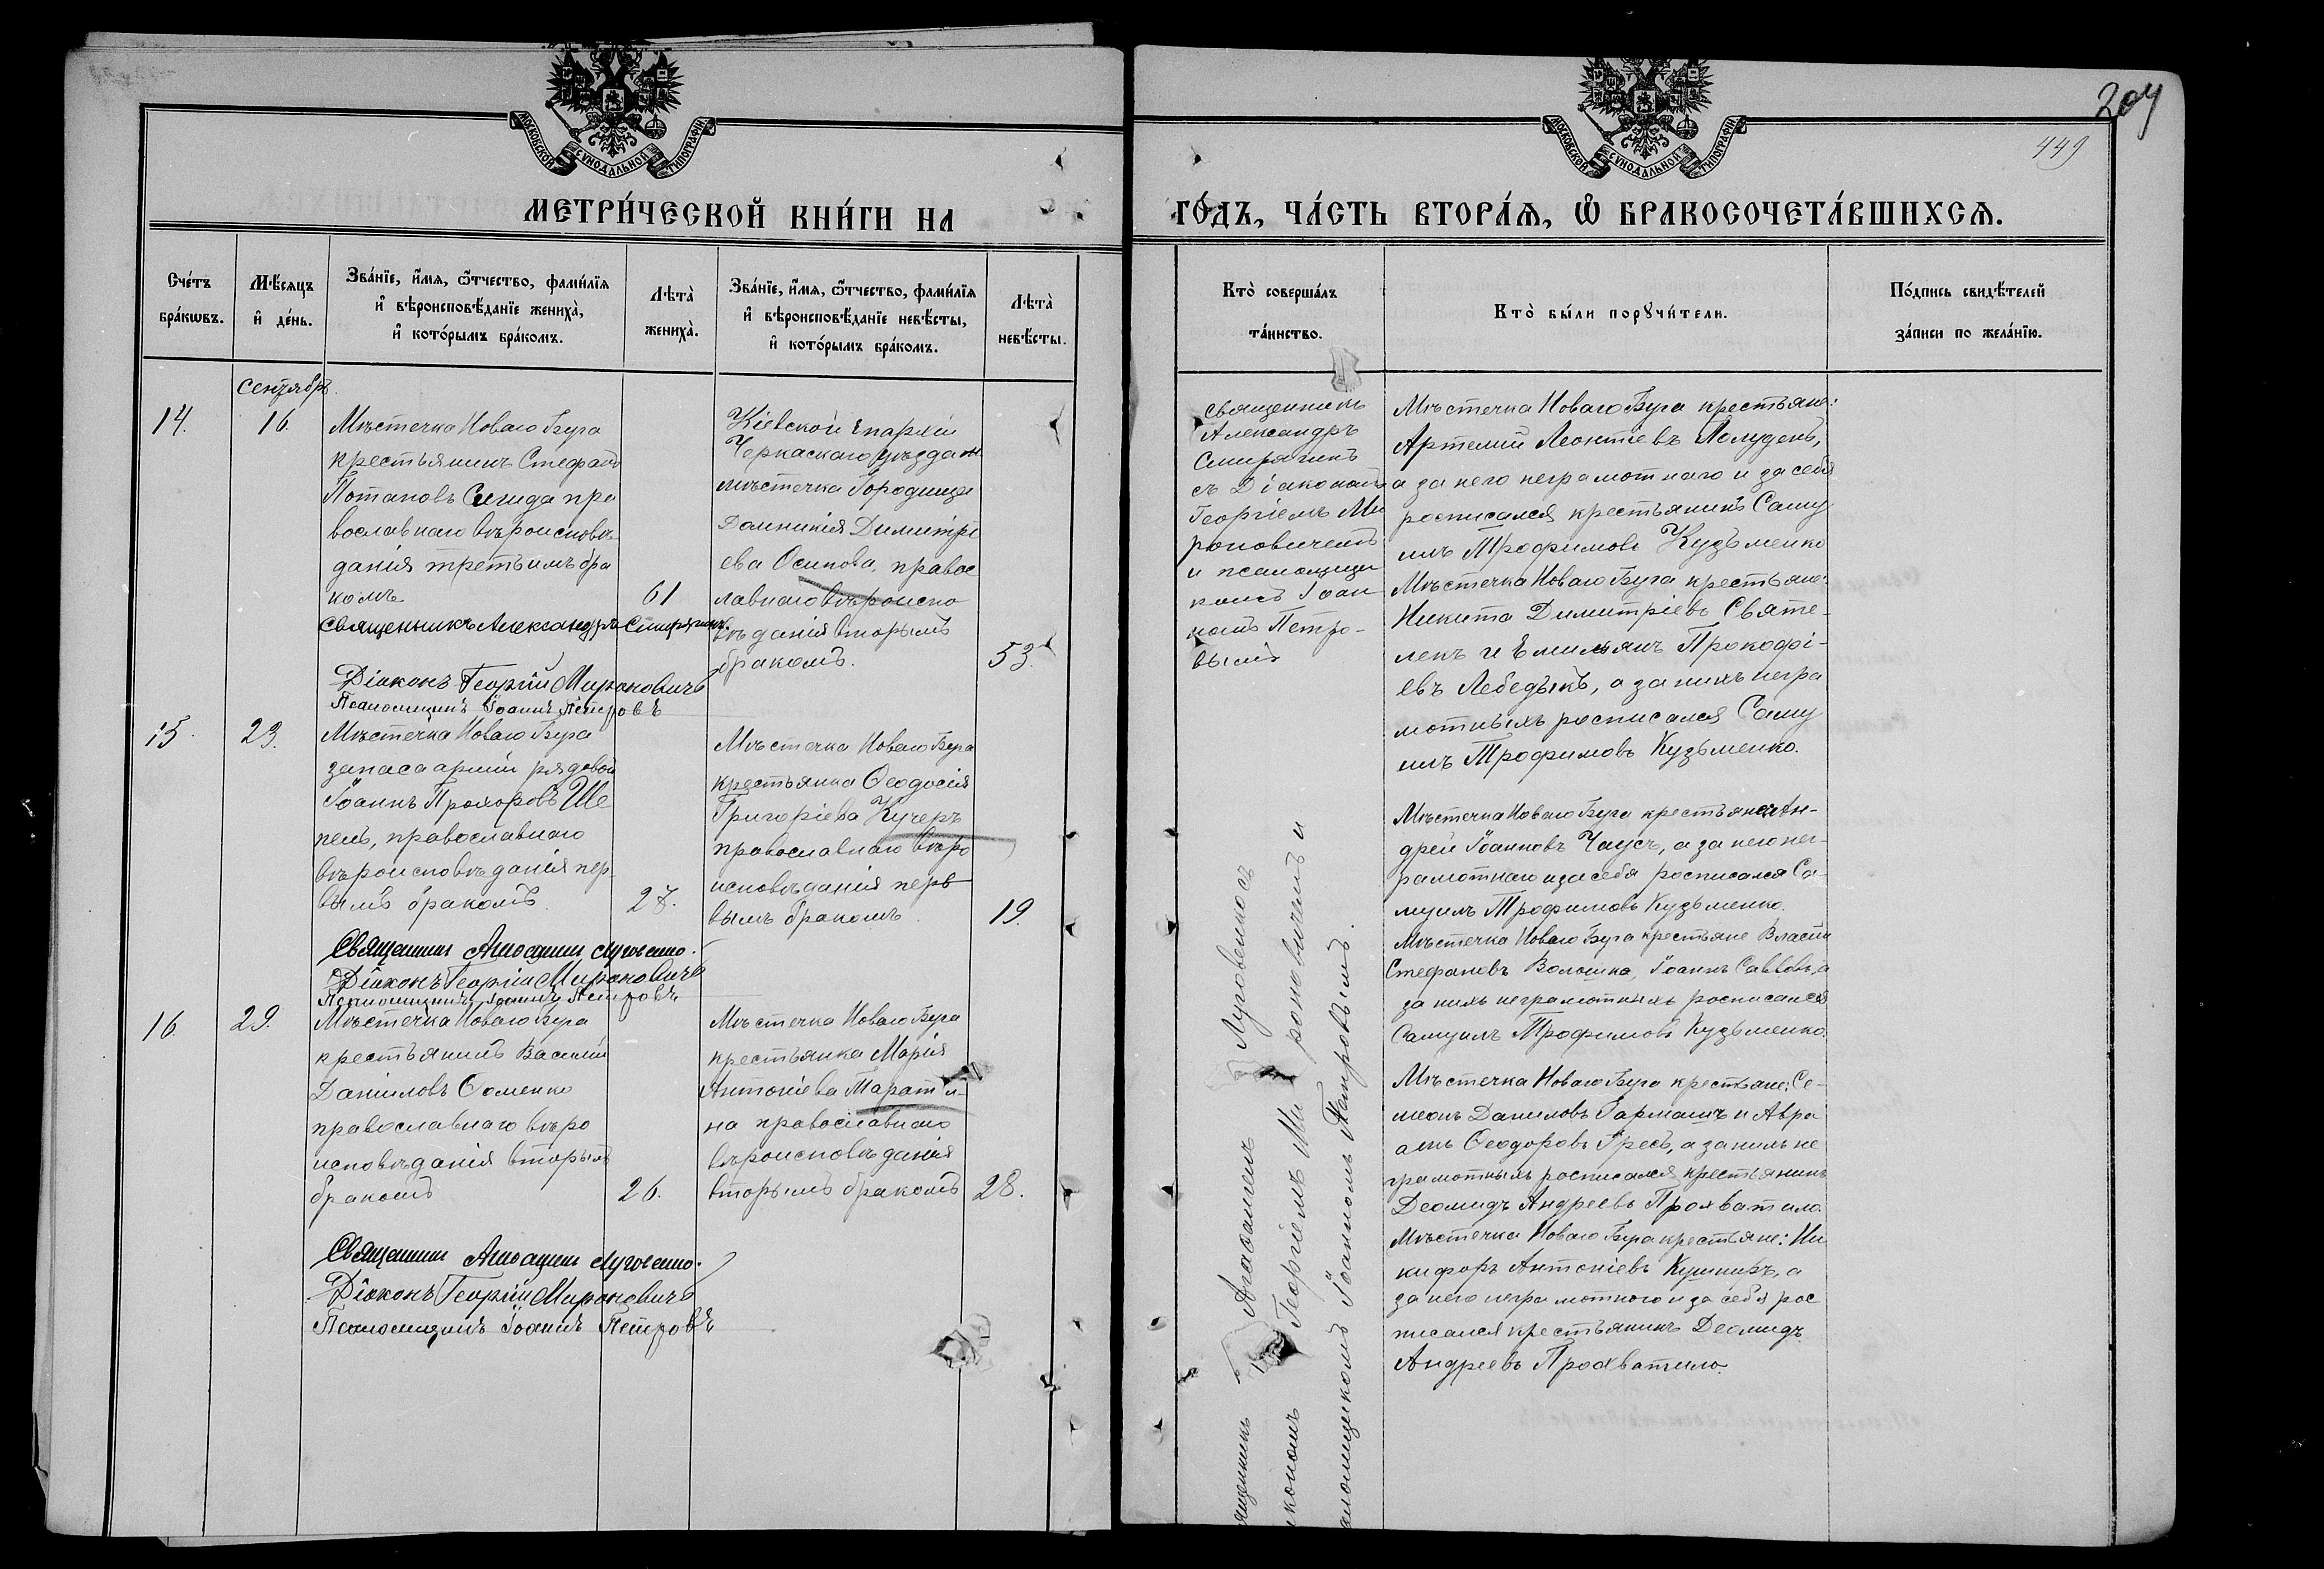 204
449
МОСКОВСКОЙ СѴНОДАЛЬНОЙ ТИПОГРАФІИ
МОСКОВСКОЙ СѴНОДАЛЬНОЙ ТИПОГРАФІИ
МЕТРИ́ЧЕСКОЙ КНИ́ГИ НА
ГО́ДЪ, ЧА́СТЬ ВТОРА́Ѧ, Ѡ҆ БРАКОСОЧЕТА́ВШИХСѦ.
Сче́тъ
бра́кѡвъ.
Мѣ́сяцъ
и҆ де́нь.
Зва́нїе, и҆́мя, ѻ҆́тчество, фами́лїя
и҆ вѣроисповѣ́данїе жениха̀,
и҆ кото́рымъ бра́комъ.
Лѣта̀
жениха̀.
Зва́нїе, и҆́мя, ѻ҆́тчество, фами́лїя
и҆ вѣроисповѣ́данїе невѣ́сты,
и҆ кото́рымъ бра́комъ.
Лѣта̀
невѣ́сты.
Кто̀ соверша́лъ
та́инство.
Кто̀ бы́ли порꙋчи́тели.
По́дпись свидѣ́телей
за́писи по жела́нїю.
Сентябрь
14.
16.
Мѣстечка Новаго Буга
крестьянинъ Стефанъ
Потаповъ Сигида пра
вославнаго вѣроисповѣ
данія третьимъ бра
комъ
61
Священникъ Александръ Смирягинъ.
Діаконъ Георгій Мироновичъ
Псаломщикъ Іоаннъ Петровъ
Кіевской Епархіи
Черкаскаго уѣзда
мѣстечка Городища
Домникія Димитрі
ева Осипова, правос
лавнаго вѣроиспо
вѣданія вторымъ
бракомъ.
53.
Священникъ
Александръ
Смирягинъ
съ Діакономъ
Георгіемъ Ми
роновичемъ
и псаломщи
комъ Іоан
номъ Петро-
вымъ
Мѣстечка Новаго Буга крестьяне:
Артемій Леонтіевъ Полудень,
а за него неграмотнаго и за себя
росписался крестьянинъ Саму
илъ Трофимовъ Кузьменко
Мѣстечка Новаго Буга крестьяне:
Никита Димитріевъ Святе-
ленъ и Емильянъ Прокофі-
евъ Лебедыкъ, а за нихъ негра
мотныхъ росписался Саму
илъ Трофимовъ Кузьменко.
15.
23.
Мѣстечка Новаго Буга
запаса арміи рядовой
Іоаннъ Прохоровъ Ше
пель, православнаго
вѣроисповѣданія пер
вымъ бракомъ.
27.
Діаконъ Георгій Мироновичъ
Псаломщикъ Іоаннъ Петровъ
Мѣстечка Новаго Буга
крестьянка Ѳеодосія
Григоріева Кучеръ
православнаго вѣро
исповѣданія перв
вымъ бракомъ.
19.
Мѣстечка Новаго Буга крестьяне: Ан-
дрей Іоанновъ Чаусъ, а за него нег-
рамотнаго и за себя росписался Са-
муилъ Трофимовъ Кузьменко.
Мѣстечка Новаго Буга крестьяне Власій
Стефановъ Волошка, Іоаннъ Савовъ, а
за нихъ неграмотныхъ росписался
Самуилъ Трофимовъ Кузьменко.
16.
29.
Мѣстечка Новаго Буга
крестьянинъ Василій
Даніиловъ Ѳоменко
православнаго вѣро
исповѣданія вторымъ
бракомъ
26.
Діаконъ Георгій Мироновичъ
Псаломщикъ Іоаннъ Петровъ
Мѣстечка Новаго Буга
крестьянка Марія
Антоніева Тарати-
на православнаго
вѣроисповѣданія
вторымъ бракомъ
28.
Мѣстечка Новаго Буга крестьяне: Се-
меонъ Даниловъ Гармашъ и Авра
амъ Ѳеодоровъ Гресь, а за нихъ не
грамотныхъ росписался крестьянинъ
Деомидъ Андреевъ Прохватило.
Мѣстечка Новаго Буга крестьяне: Ни
кифоръ Антоніевъ Кушниръ, а
за него неграмотнаго и за себя рос
писался крестьянинъ Деомидъ
Андреевъ Прохватило.
ященникъ Агаѳангелъ Луговенко съ
іакономъ Георгіемъ Мироновичемъ и
аломщикомъ Іоанномъ Петровымъ.